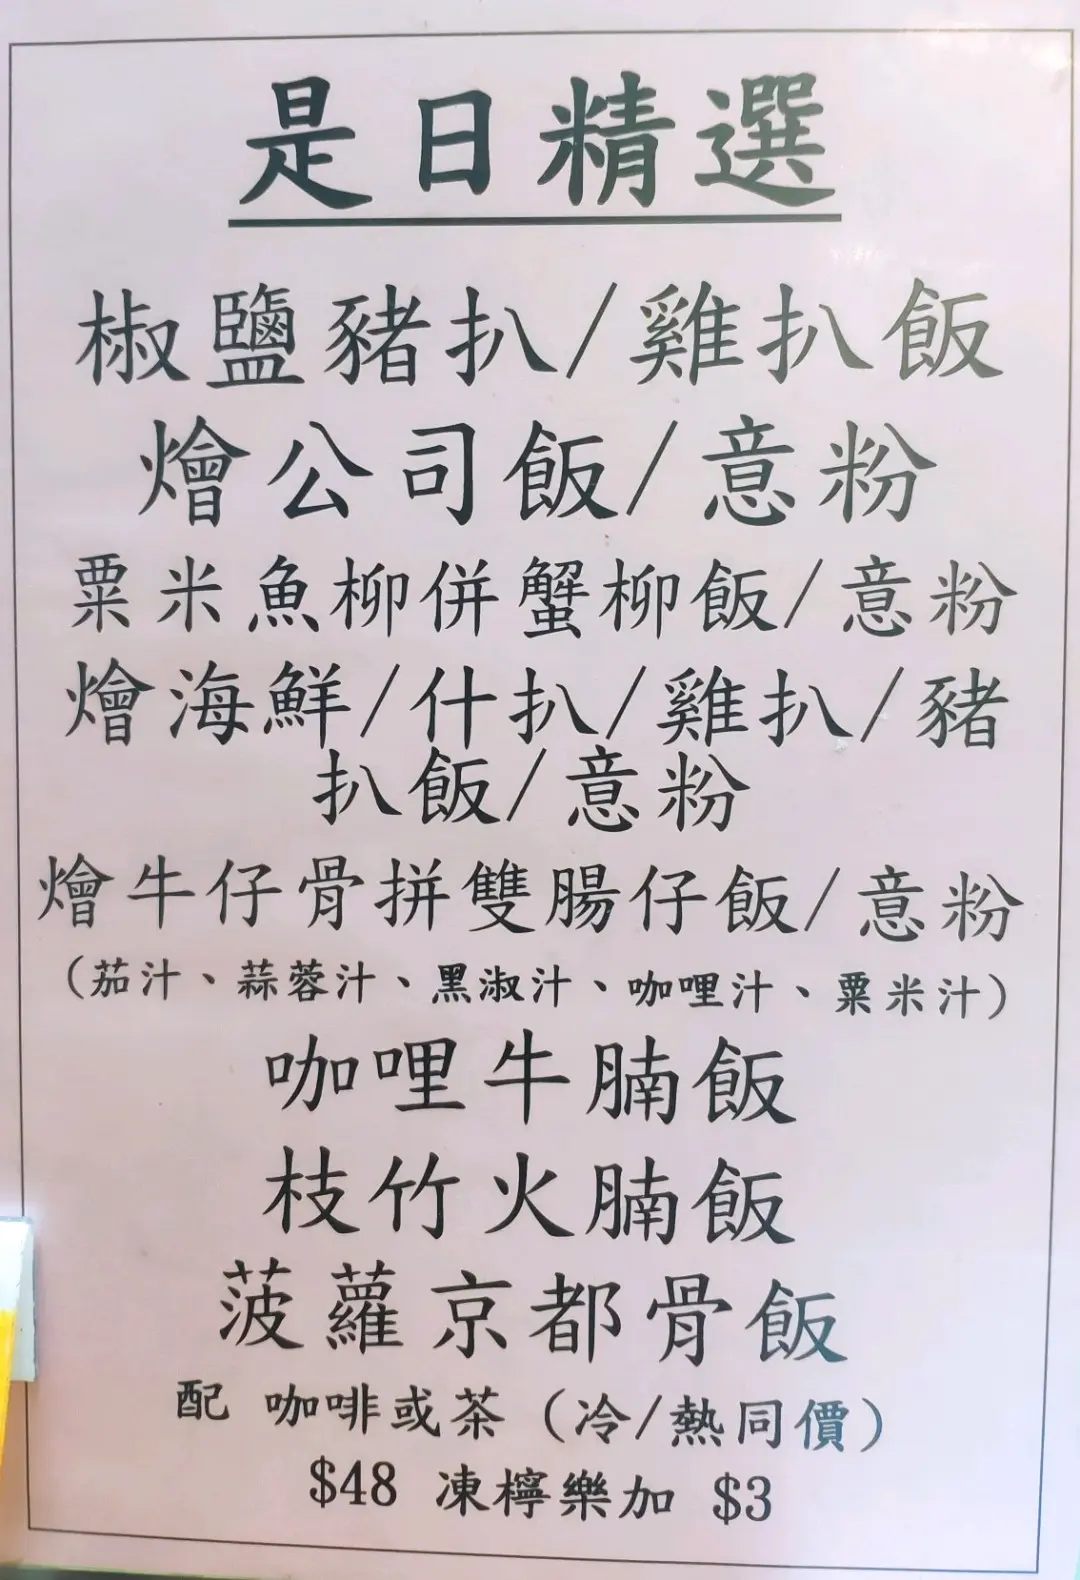 是日精選
椒鹽豬扒/雞扒飯
燴公司飯/意粉
粟米魚柳併蟹柳飯/意粉
燴海鮮/什扒/雞扒/豬
扒飯/意粉
燴牛仔骨拼雙腸仔飯/意粉
（茄汁、蒜蓉汁、黑淑汁、咖哩汁、粟米汁）
咖哩牛腩飯
枝竹火腩飯
菠蘿京都骨飯
配 咖啡或茶（冷/熱同價）
$48 凍檸樂加 $3